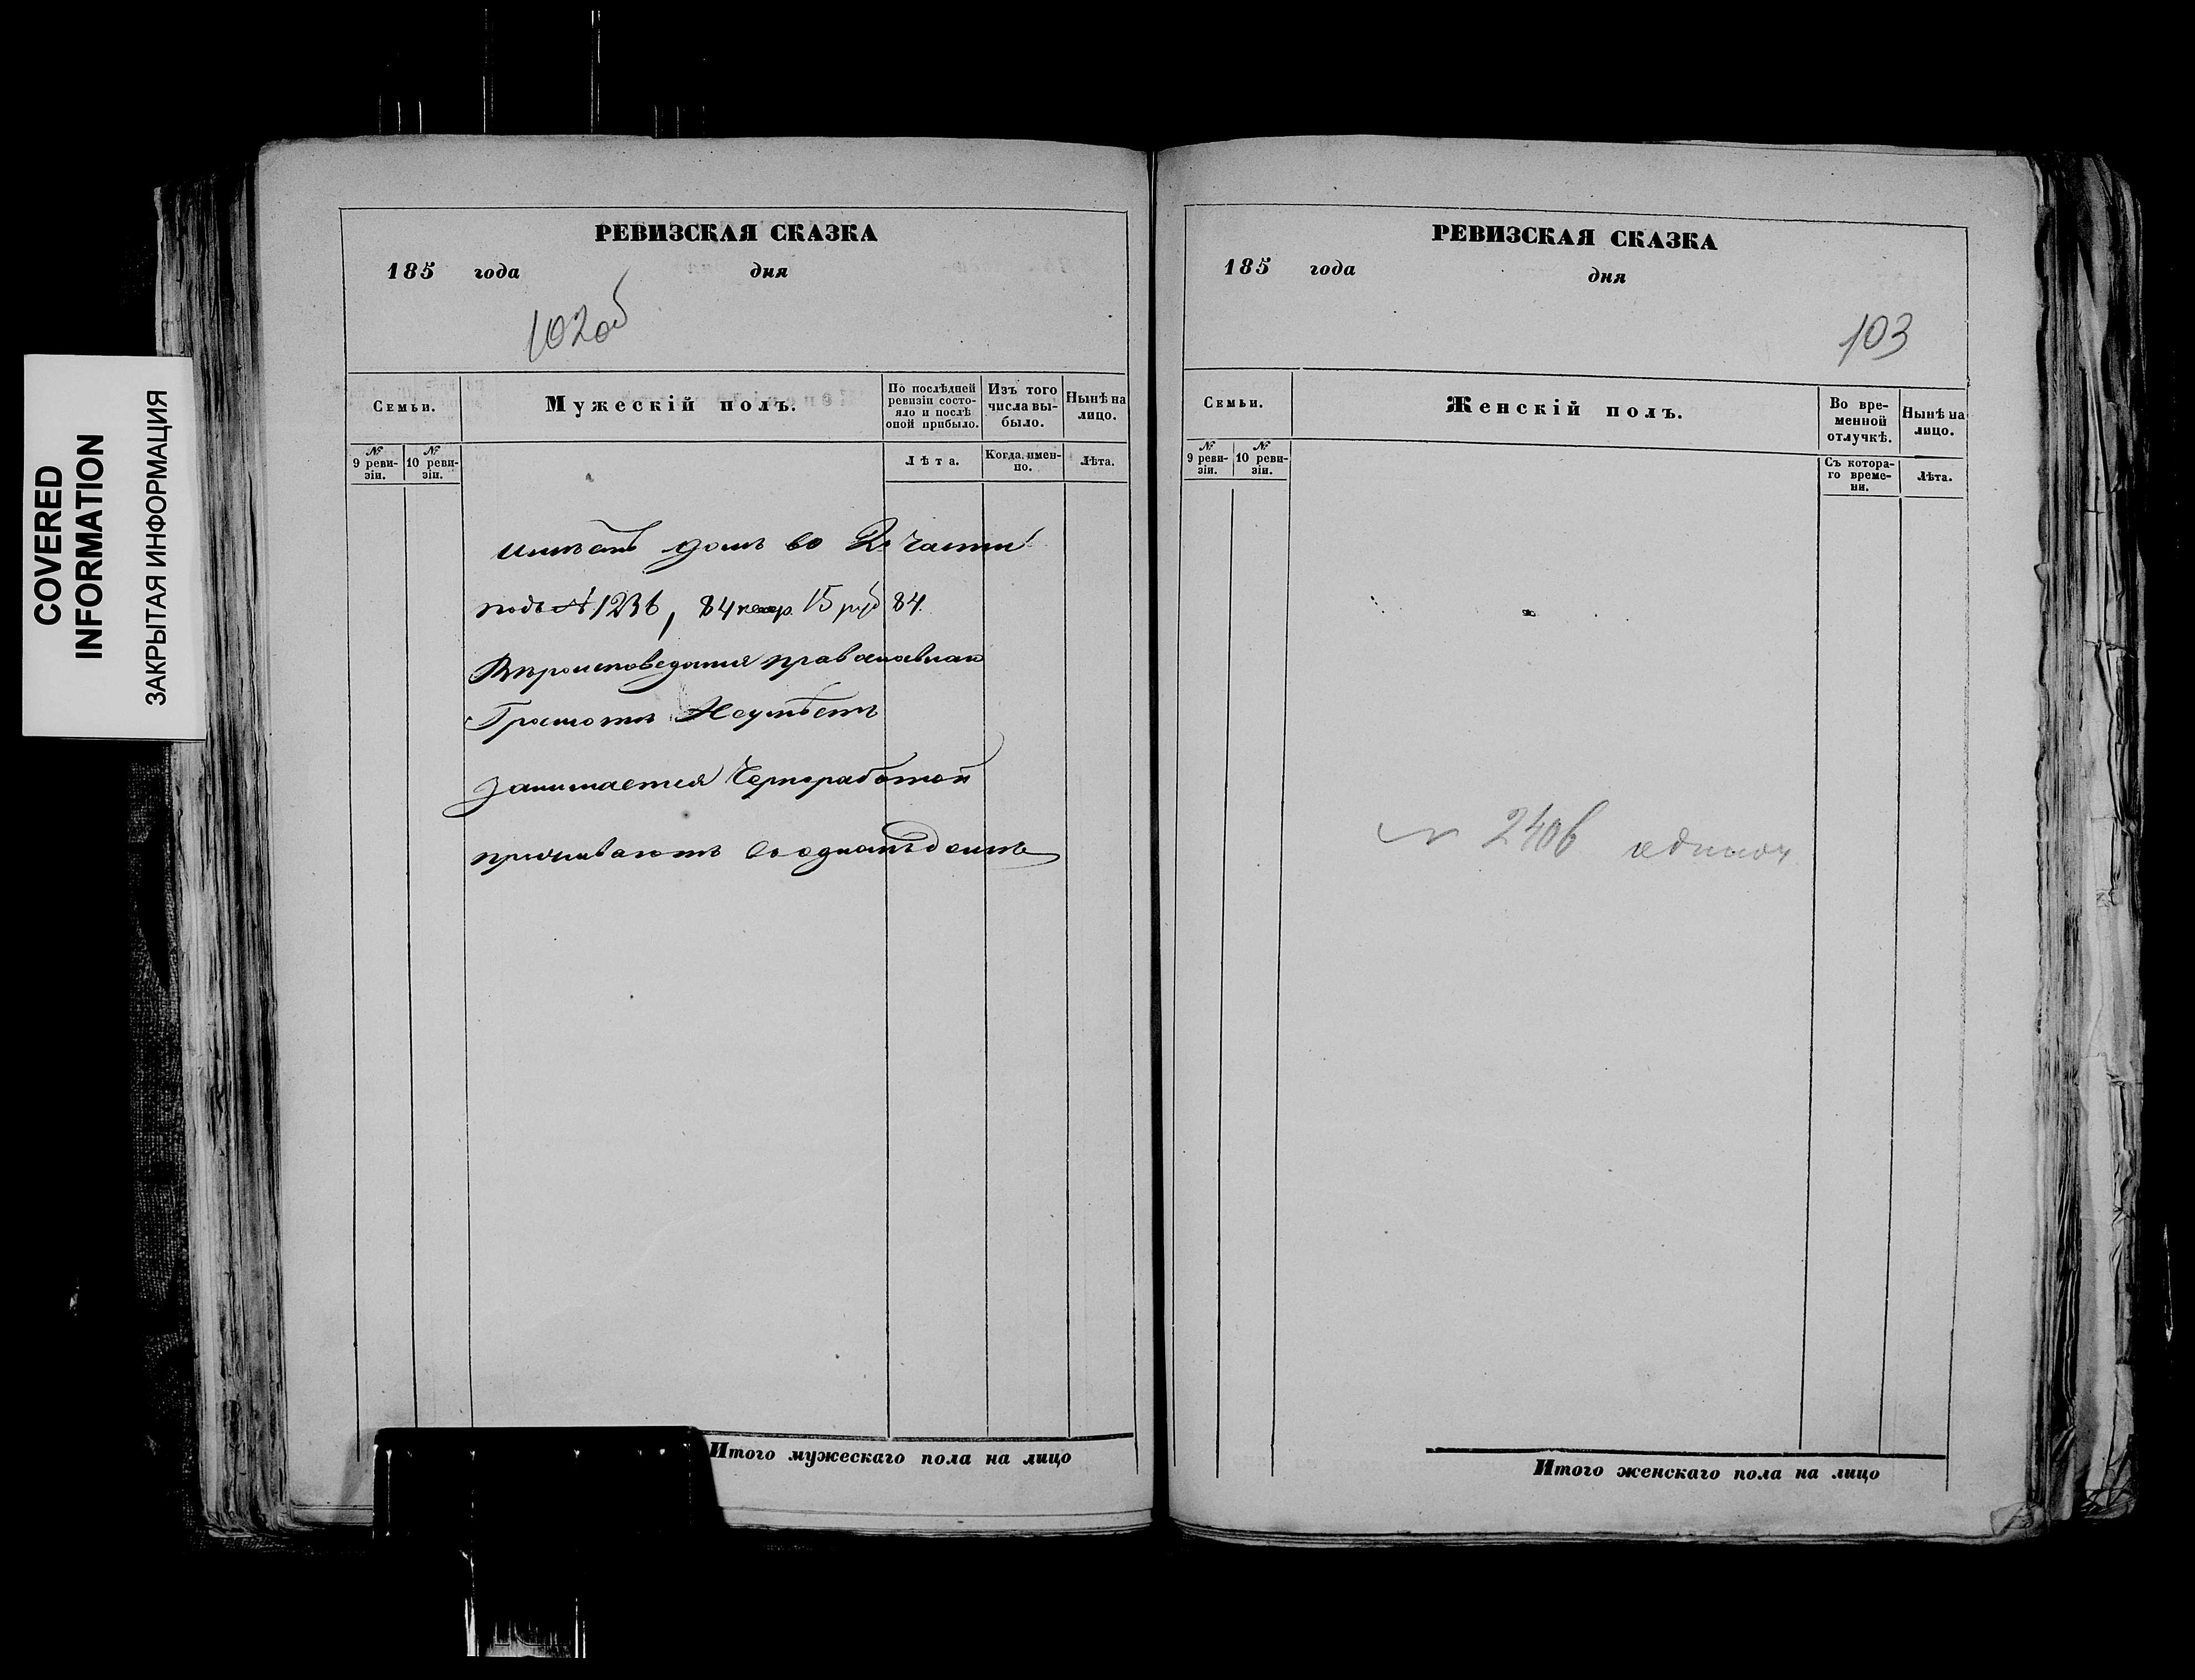 COVERED
INFORMATION
ЗАКРЫТАЯ ИНФОРМАЦИЯ
РЕВИЗСКАЯ СКАЗКА
185 года дня
102об
Семьи.
Мужескій полъ.
По послѣдней
ревизіи состо-
яло и послѣ
оной прибыло.
Изъ того
числа вы-
было.
Нынѣ на
лицо.
№
9 реви-
зіи.
№
10 реви-
зіи.
Лѣта.
Когда имен-
но.
Лѣта.
имѣетъ домъ во 2й части
подъ № 1236, 84 15 руб 84
Вѣроисповеданія православнаго
Грамоти Неумѣетъ
Занимается Чернработой
проживаютъ во одномъ домѣ
Итого мужескаго пола на лицо
РЕВИЗСКАЯ СКАЗКА
185 года дня
103
Семьи.
Женскій полъ.
Во вре-
менной
отлучкѣ.
Нынѣ на
лицо.
№
9 реви-
зіи.
№
10 реви-
зіи.
Съ котора-
го време-
ни.
Лѣта.
2406
Итого женскаго пола на лицо